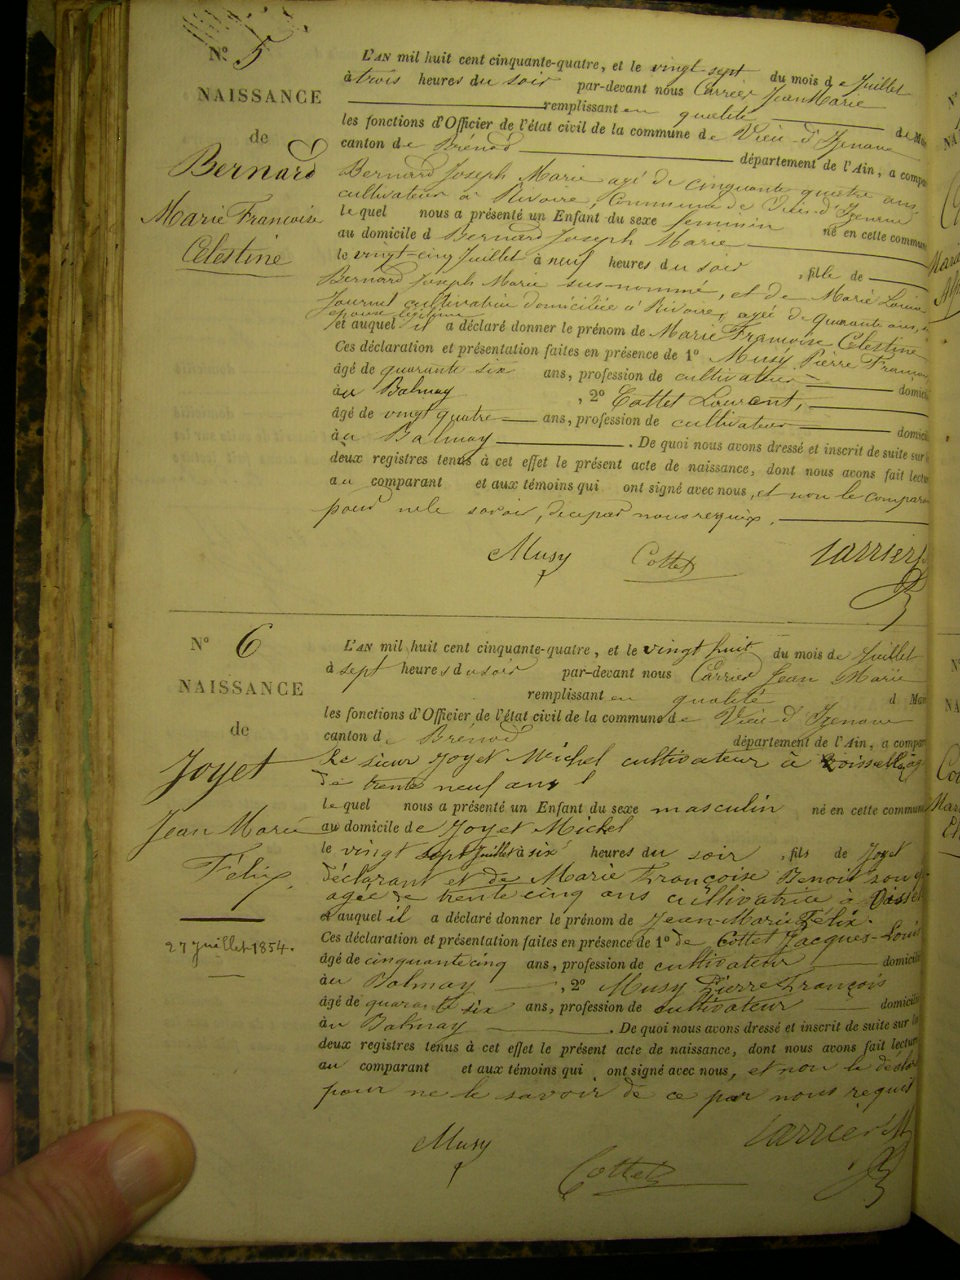 N° 5
NAISSANCE
de
Bernard
Marie Françoise
Célestine
L'AN mil huit cent cinquante-quatre, et le vingt-sept du mois de Juillet
à trois heures du soir par-devant nous Carrier Jean Marie
remplissant en qualité de M
les fonctions d'Officier de l'état civil de la commune de Vieu-d'Izenave
canton de Brénod département de l'Ain, a compa
Bernard Joseph Marie agé de cinquante quatre ans,
cultivateur à Rivoire, Commune de Vieu d'Izenave
lequel nous a présenté un Enfant du sexe feminin né en cette commun
au domicile d Bernard Joseph Marie
le vingt-cinq Juillet à neuf heures du soir , fille de
Bernard Joseph Marie susnommé, et de Marie Louise
Journet cultivatrice domiciliée à Rivoire, agée de quarante ans,
épouse légitime
et auquel il a déclaré donner le prénom de Marie Françoise Célestine
Ces déclaration et présentation faites en présence de 1° Musy Pierre François
âgé de quarante six ans, profession de cultivateur domici
à au Balmay , 2° Cottet Laurent,
âgé de vingt quatre ans, profession de cultivateur domici
à au Balmay . De quoi nous avons dressé et inscrit de suite sur
deux registres tenus à cet effet le présent acte de naissance, dont nous avons fait lectu
au comparant et aux témoins qui ont signé avec nous, et non le compara
pour ne le savoir, de ce par nous requis.
Musy Cottet Carrier
N° 6
NAISSANCE
de
Joyet
Jean Marie
Félix.
27 Juillet 1854.
L'AN mil huit cent cinquante-quatre, et le vingt huit du mois de Juillet
à sept heures du soir par-devant nous Carrier Jean Marie
remplissant en qualité d Mai
les fonctions d'Officier de l'état civil de la commune de Vieu-d'Izenave
canton de Brénod département de l'Ain, a compa
Le sieur Joyet Michel cultivateur à
de trente neuf ans
lequel nous a présenté un Enfant du sexe masculin né en cette commune
au domicile de Joyet Michel
le vingt sept Juillet à six heures du soir , fils de Joyet
déclarant et de Marie Françoise Benoit son
agée de trente cinq ans cultivatrice à
et auquel il a déclaré donner le prénom de Jean-Marie Félix.
Ces déclaration et présentation faites en présence de 1° de Cottet Jacques-Loui
âgé de cinquante cinq ans, profession de cultivateur domicili
à au Balmay , 2° Musy Pierre François
âgé de quarante six ans, profession de cultivateur domicili
à au Balmay . De quoi nous avons dressé et inscrit de suite sur
deux registres tenus à cet effet le présent acte de naissance, dont nous avons fait lectur
au comparant et aux témoins qui ont signé avec nous, et non le décla
pour ne le savoir de ce par nous requis
Musy Cottet Carrier